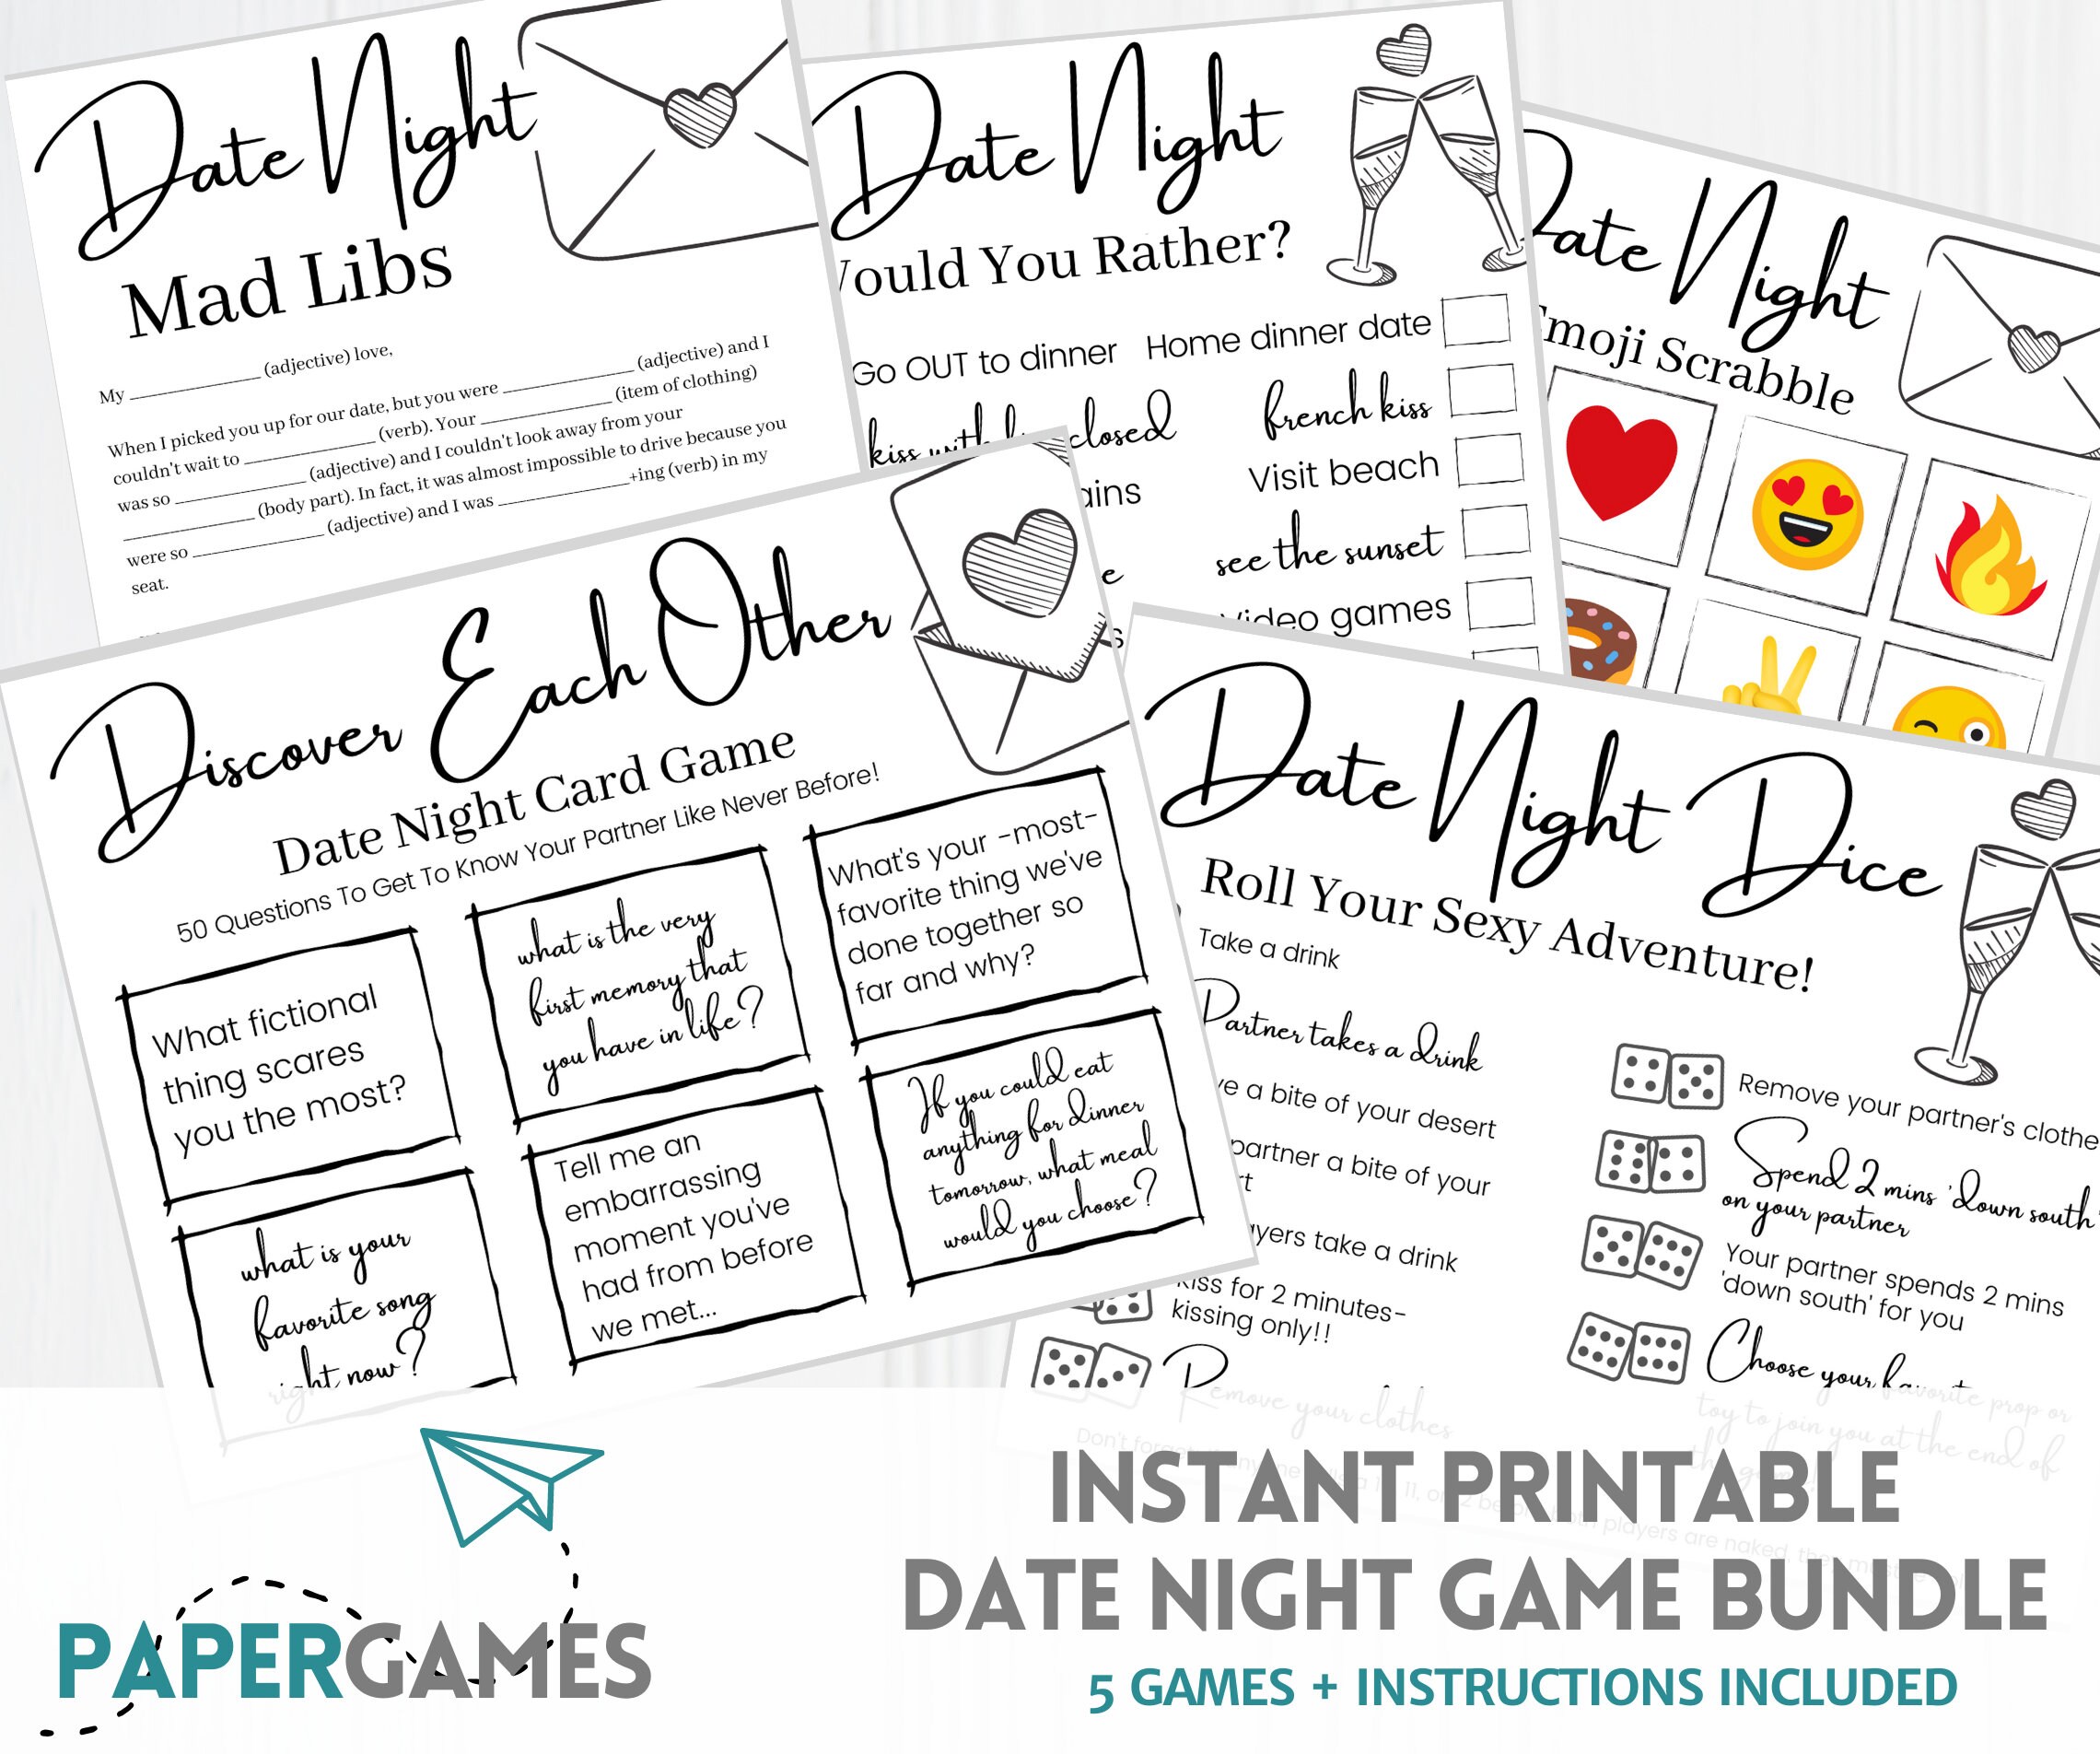 Date Night
Mad Libs
My ____________ (adjective) love,
When I picked you up for our date, but you were ____________ (adjective) and I
couldn't wait to ____________ (verb). Your ____________ (item of clothing)
was so ____________ (adjective) and I couldn't look away from your
____________ (body part). In fact, it was almost impossible to drive because you
were so ____________ (adjective) and I was ____________+ing (verb) in my
seat.
Date Night
Would You Rather?
Go OUT to dinner Home dinner date
kiss with closed french kiss
Visit beach
see the sunset
Video games
Date Night
Emoji Scrabble
Discover Each Other
Date Night Card Game
50 Questions To Get To Know Your Partner Like Never Before!
What fictional
thing scares
you the most?
what is the very
first memory that
you have in life?
What's your -most-
favorite thing we've
done together so
far and why?
what is your
favorite song
right now?
Tell me an
embarrassing
moment you've
had from before
we met...
If you could eat
anything for dinner
tomorrow, what meal
would you choose?
Date Night Dice
Roll Your Sexy Adventure!
Take a drink
Partner takes a drink
a bite of your desert
partner a bite of your
take a drink
Kiss for 2 minutes-
kissing only!!
Remove your clothes
Remove your partner's clothes
Spend 2 mins 'down south'
on your partner
Your partner spends 2 mins
'down south' for you
Choose your favorite prop or
toy to join you at the end of
the game
Don't forget
players are naked, they
PAPERGAMES
INSTANT PRINTABLE
DATE NIGHT GAME BUNDLE
5 GAMES + INSTRUCTIONS INCLUDED